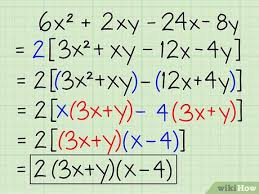 6x² + 2xy - 24x - 8y
= 2[3x² + xy - 12x - 4y]
= 2[(3x²+xy)-(12x+4y)]
= 2[x(3x+y) - 4(3x+y)]
= 2[(3x+y)(x-4)]
= 2(3x+y)(x-4)
wikiHow